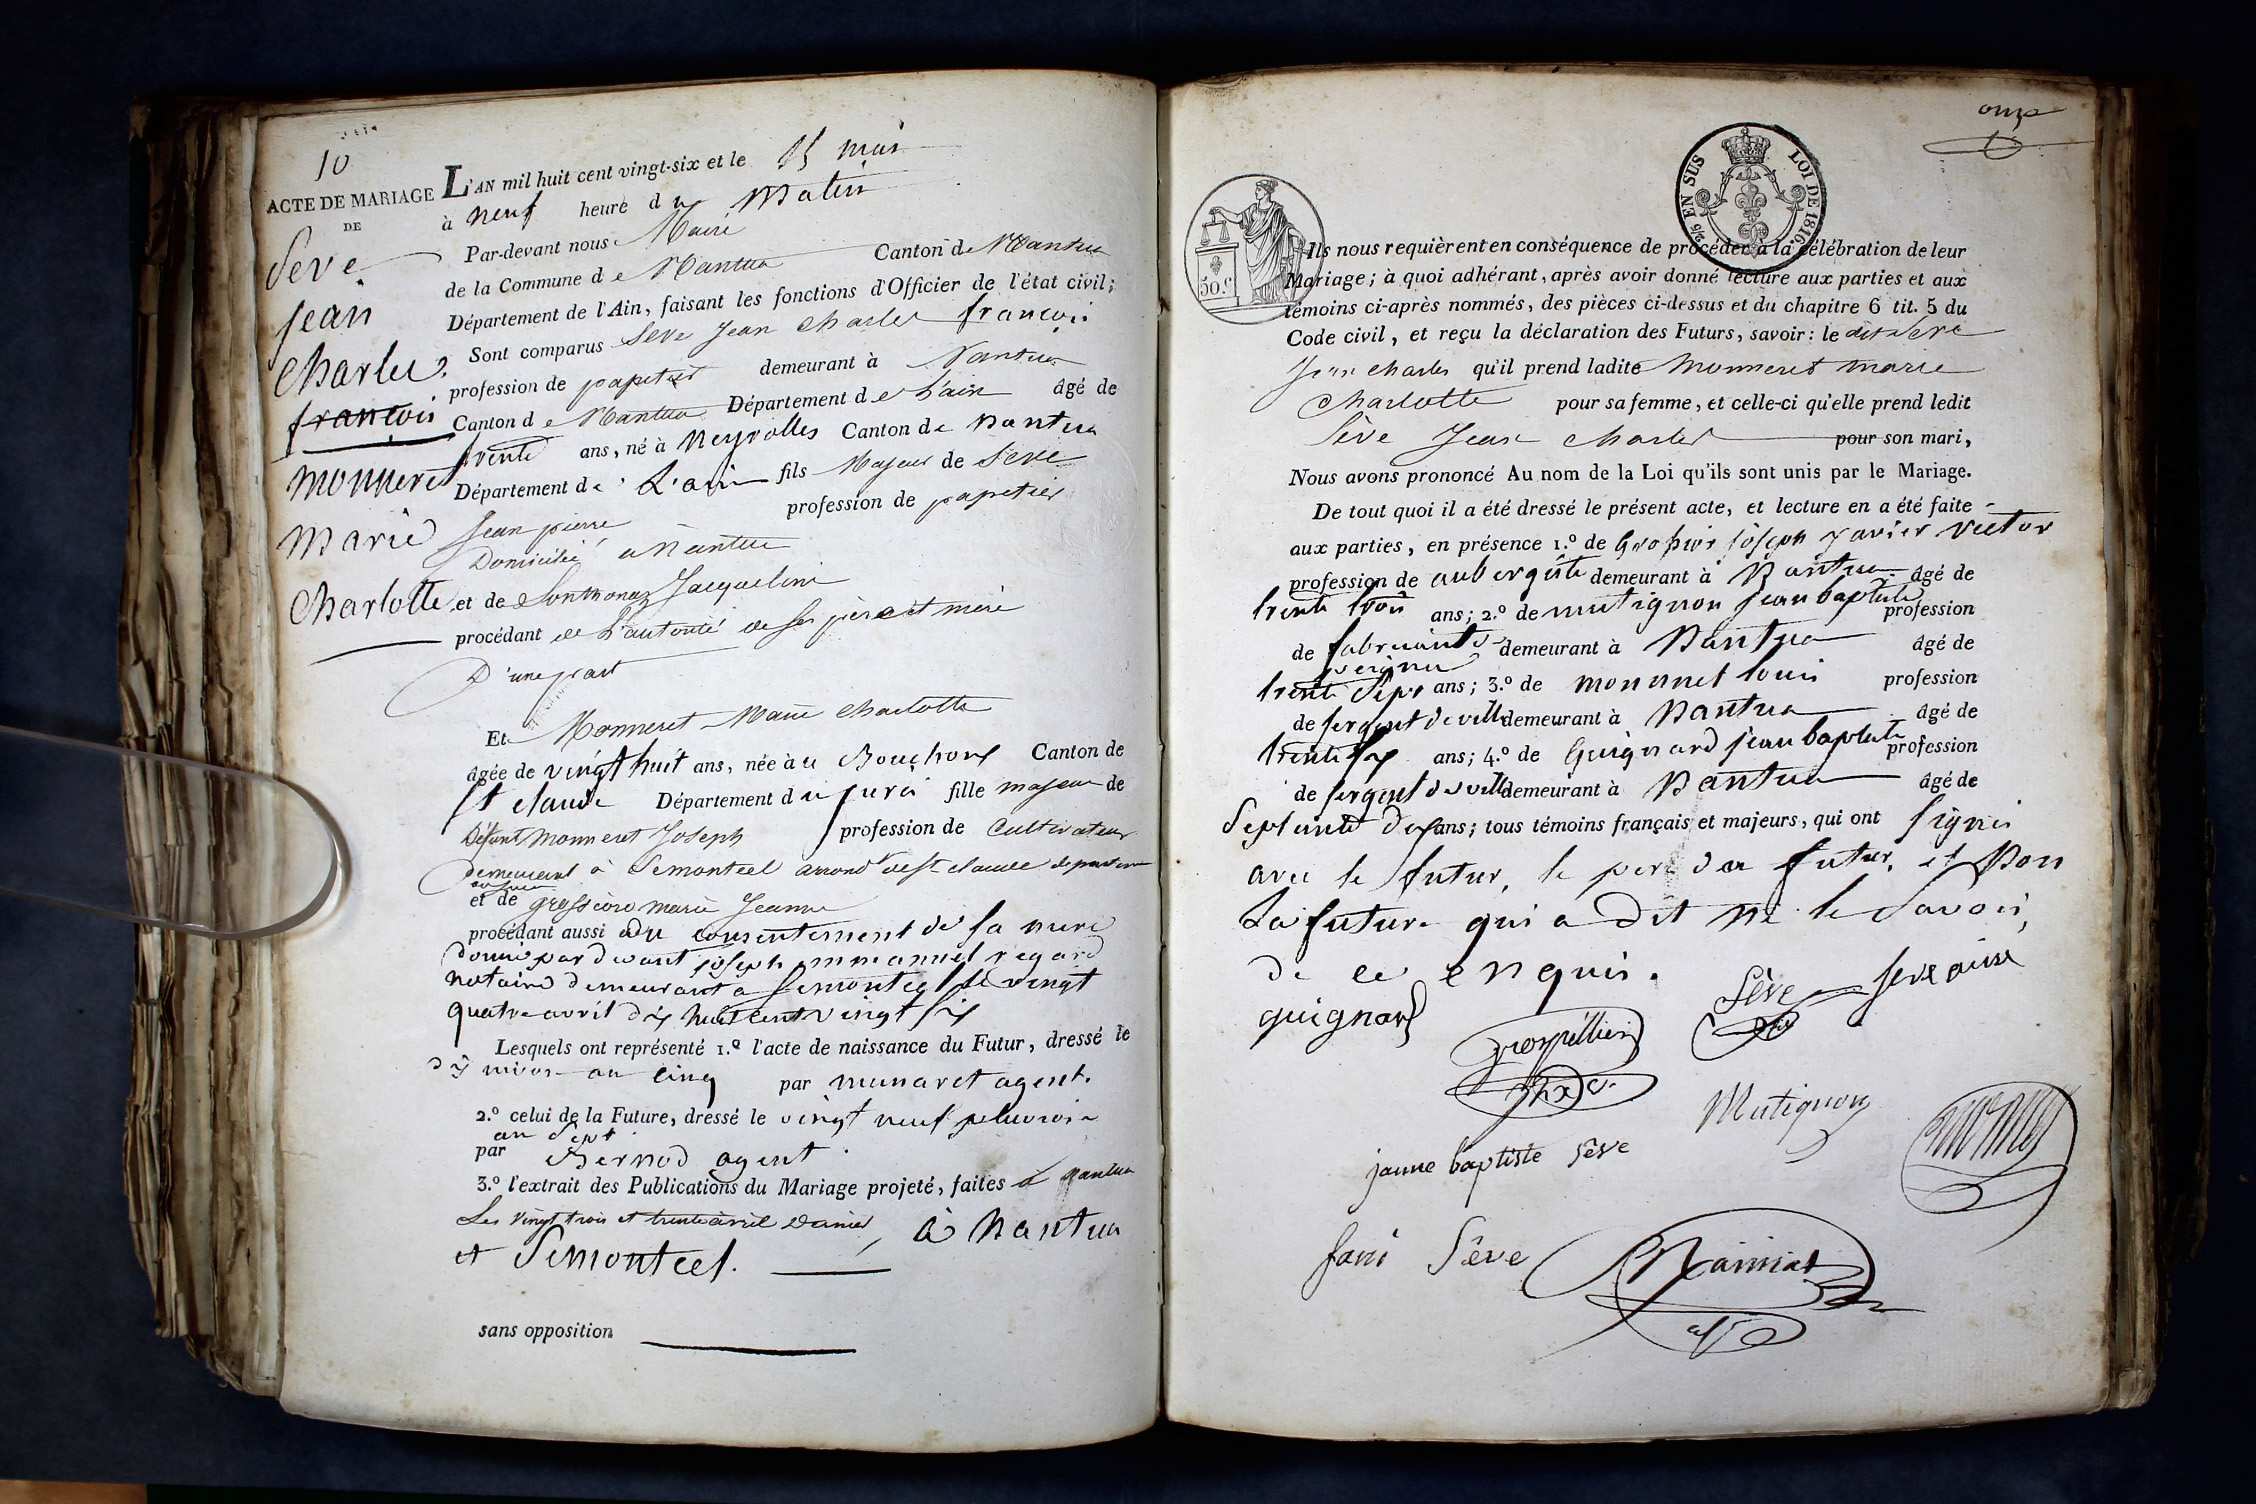 10
ACTE DE MARIAGE
DE
Seve
jean
Charles
françois
monneret
Marie
Charlotte
L'AN mil huit cent vingt-six et le 15 mai
à neuf heure du Matin
Par-devant nous Maire
de la Commune de Nantua Canton de Nantua
Département de l'Ain, faisant les fonctions d'Officier de l'état civil;
Sont comparus Seve Jean Charles françois
profession de papetier demeurant à Nantua
Canton de Nantua Département de L'ain âgé de
trente ans, né à Neyrolles Canton de Nantua
Département de L'ain fils Majeur de Seve
Jean pierre profession de papetier
Domicilié a Nantua
et de Sonthonaz Jacqueline
procédant de L'autorité de ses père et mère
D'une part
Et Monneret Marie Charlotte
âgée de vingt huit ans, née à u Bouchoux Canton de
St claude Département du jura fille majeur de
Défunt Monneret Joseph profession de Cultivateur
demeurant à Semontcel arrond de St claude departem
et de grossiord marie Jeanne
procédant aussi du consentement de sa mere
donné par devant joseph emmanuel regard
notaire demeurant a Semontcel le vingt
quatre avril dix huit cent vingt six
Lesquels ont représenté 1.º l'acte de naissance du Futur, dressé le
dix nivos an cinq par munaret agent.
2.º celui de la Future, dressé le vingt neuf pluviose
an sept
par Bernod agent.
3.º l'extrait des Publications du Mariage projeté, faites à Nantua
Les vingt trois et trente avril Dernier, à Nantua
et Semontcel.
sans opposition
onze
5/6 EN SUS LOI DE 1816.
50 C.
Ils nous requièrent en conséquence de procéder à la célébration de leur
Mariage; à quoi adhérant, après avoir donné lecture aux parties et aux
témoins ci-après nommés, des pièces ci-dessus et du chapitre 6 tit. 5 du
Code civil, et reçu la déclaration des Futurs, savoir: le dit Seve
Jean charles qu'il prend ladite Monneret marie
Charlotte pour sa femme, et celle-ci qu'elle prend ledit
Sève Jean Charles pour son mari,
Nous avons prononcé Au nom de la Loi qu'ils sont unis par le Mariage.
De tout quoi il a été dressé le présent acte, et lecture en a été faite
aux parties, en présence 1.º de joseph xavier Victor
profession de aubergiste demeurant à Nantua âgé de
trente trois ans; 2.º de mutignon jean baptiste profession
de fabriquant de peignes demeurant à Nantua âgé de
trente sept ans; 3.º de louis profession
de sergent de ville demeurant à Nantua âgé de
trente six ans; 4.º de Guignard jean baptiste profession
de sergent de ville demeurant à Nantua âgé de
Septante ans; tous témoins français et majeurs, qui ont signés
avec le futur, le pere du futur, et Non
La future qui a dit ne le Savoir,
de ce enquis.
guignard
Sève
Seve ainé
Mutignon
jaune baptiste seve
fani Sève